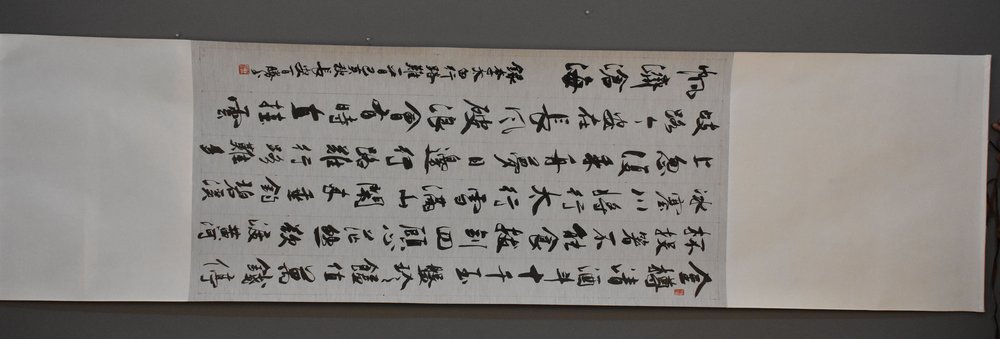 金樽清酒斗十千玉盤珍饈值萬錢停
杯投箸不能食拔劍四顧心茫然欲渡黃河
冰塞川將登太行雪滿山閒來垂釣碧溪
上忽復乘舟夢日邊行路難行路難多
歧路今安在長風破浪會有時直挂雲
帆濟滄海
錄李太白行路難一首己亥秋長安丁勝